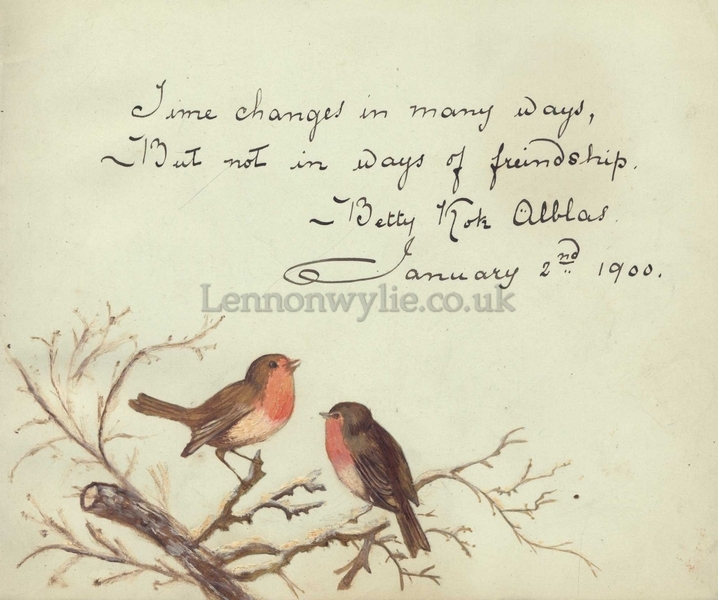 Time changes in many ways,
But not in ways of freindship.
Betty Kok Alblas.
January 2nd 1900.
Lennonwylie.co.uk